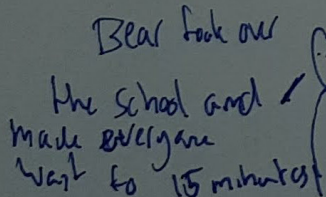 Bear took over
the school and
made everyone
wait to 15 minutes